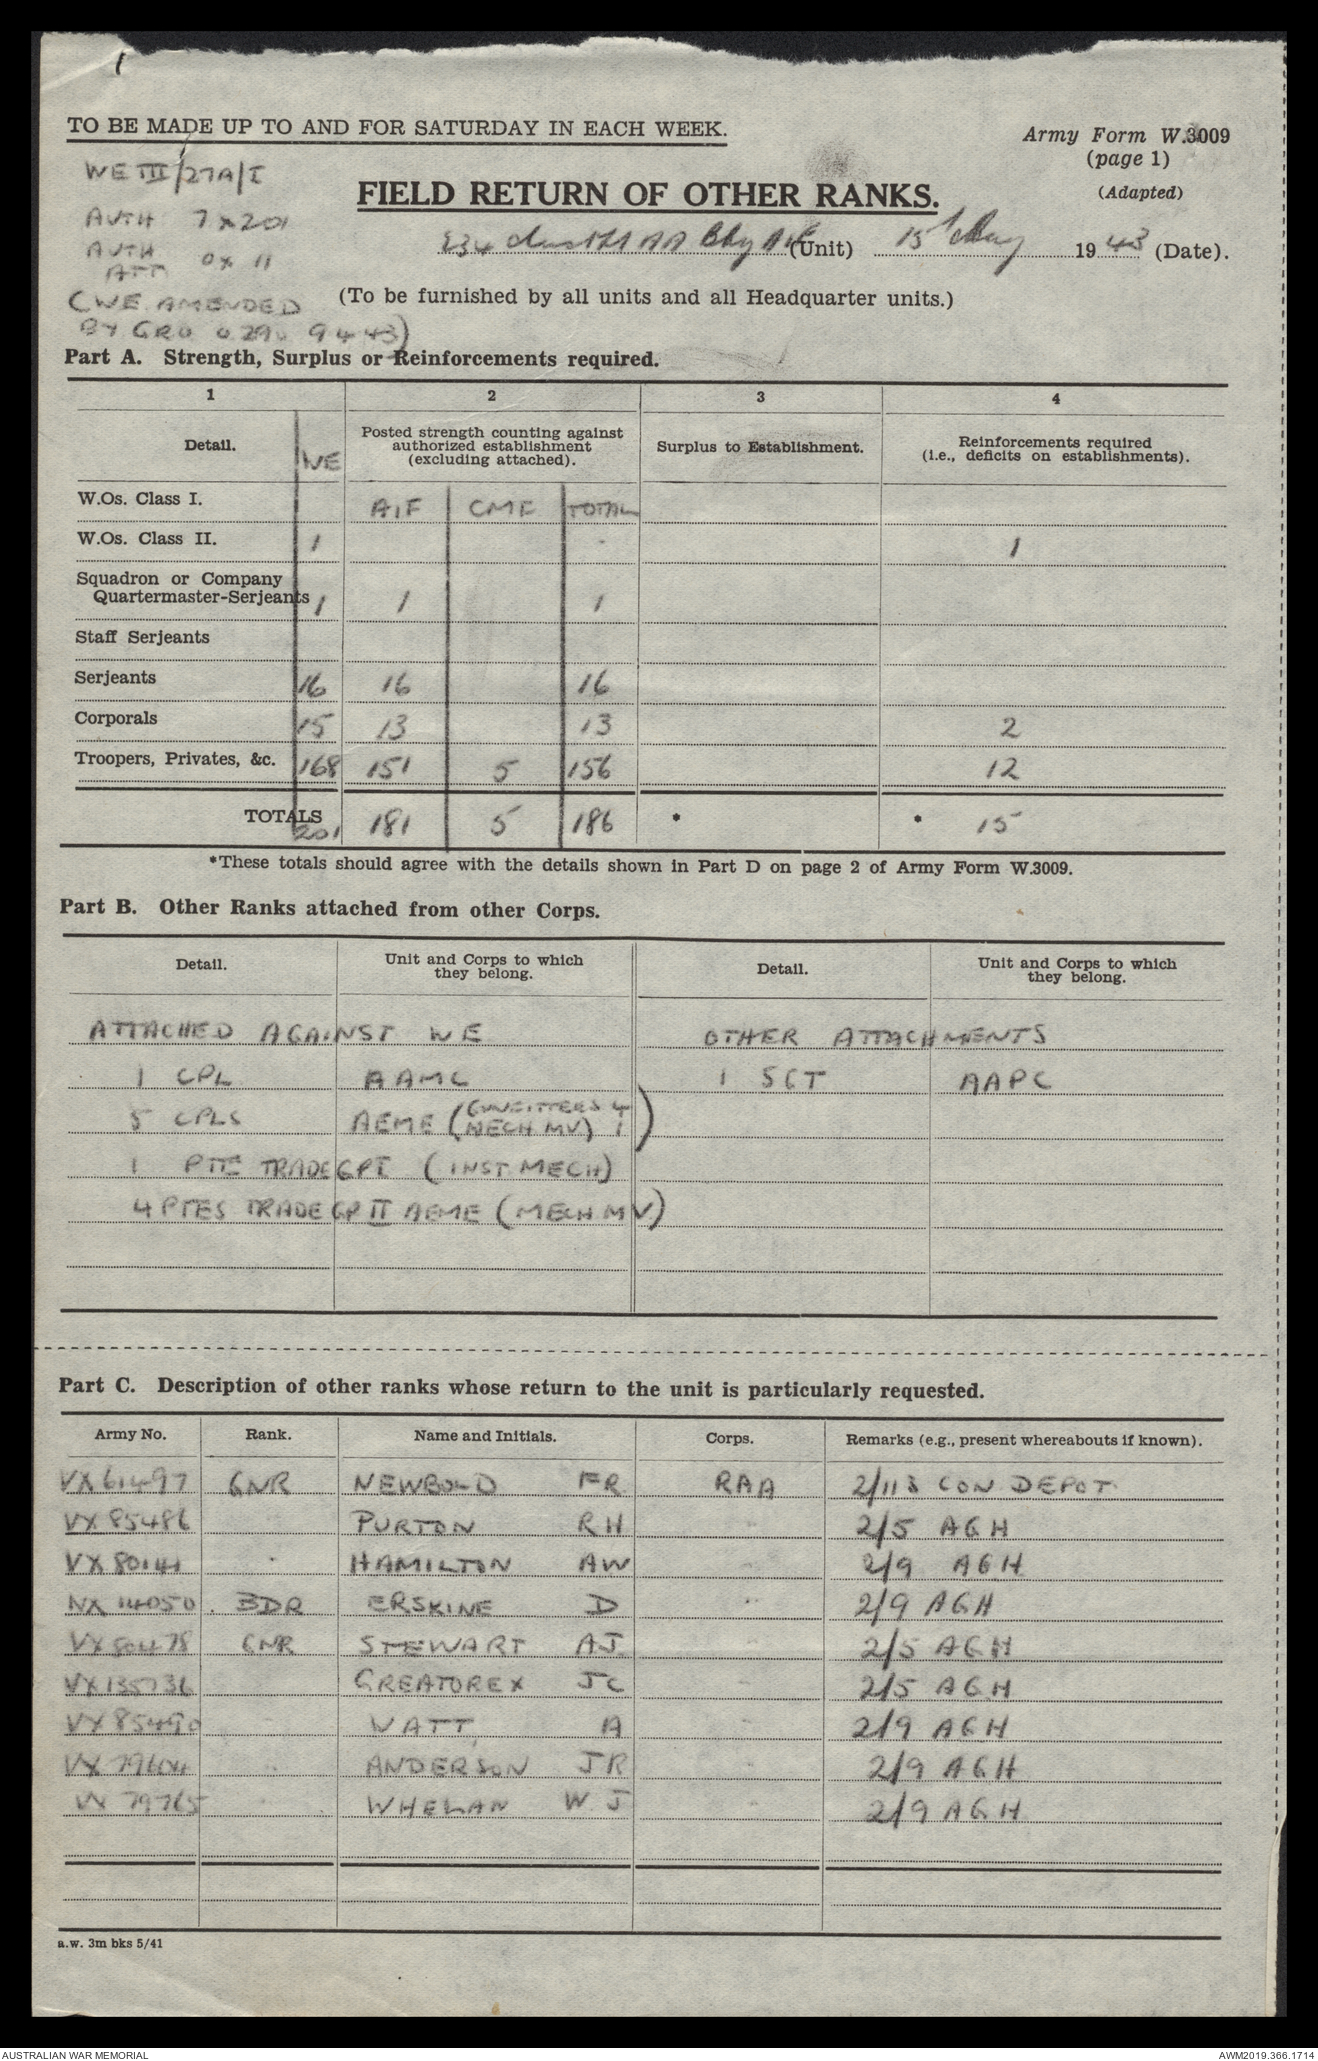 1
TO BE MADE UP TO AND FOR SATURDAY IN EACH WEEK.
Army Form W.3009
(page 1)
(Adapted)
WE III/27A/I
FIELD RETURN OF OTHER RANKS.
AUTH 7 x 201
AUTH
ATT 0 x 11
234 Aust Lt AA Bty AIF (Unit) 15 May 1943 (Date).
(WE AMENDED
BY GRO 0290 9 4 43)
(To be furnished by all units and all Headquarter units.)
Part A. Strength, Surplus or Reinforcements required.
1 2 3 4
Detail. WE Posted strength counting against authorized establishment (excluding attached). Surplus to Establishment. Reinforcements required (i.e., deficits on establishments).
W.Os. Class I. AIF CMF TOTAL
W.Os. Class II. 1 - 1
Squadron or Company
Quartermaster-Serjeants 1 1 1
Staff Serjeants
Serjeants 16 16 16
Corporals 15 13 13 2
Troopers, Privates, &c. 168 151 5 156 12
TOTALS 201 181 5 186 * * 15
*These totals should agree with the details shown in Part D on page 2 of Army Form W.3009.
Part B. Other Ranks attached from other Corps.
Detail. Unit and Corps to which they belong. Detail. Unit and Corps to which they belong.
ATTACHED AGAINST WE OTHER ATTACHMENTS
1 CPL AAMC 1 SGT AAPC
5 CPLS AEME (GUNFITTERS 4
MECH MV) 1)
1 PTE TRADE GP I (INST MECH)
4 PTES TRADE GP II AEME (MECH MV)
Part C. Description of other ranks whose return to the unit is particularly requested.
Army No. Rank. Name and Initials. Corps. Remarks (e.g., present whereabouts if known).
VX61497 GNR NEWBOLD FR RAA 2/113 CON DEPOT
VX85486 " PURTON RH " 2/5 AGH
VX80141 " HAMILTON AW " 2/9 AGH
NX14050 BDR ERSKINE D " 2/9 AGH
VX80478 GNR STEWART AJ " 2/5 AGH
VX135736 GREATOREX JC " 2/5 AGH
VX85490 " WATT A " 2/9 AGH
VX79604 " ANDERSON JR " 2/9 AGH
VX79765 " WHELAN WJ " 2/9 AGH
a.w. 3m bks 5/41
AUSTRALIAN WAR MEMORIAL AWM2019.366.1714